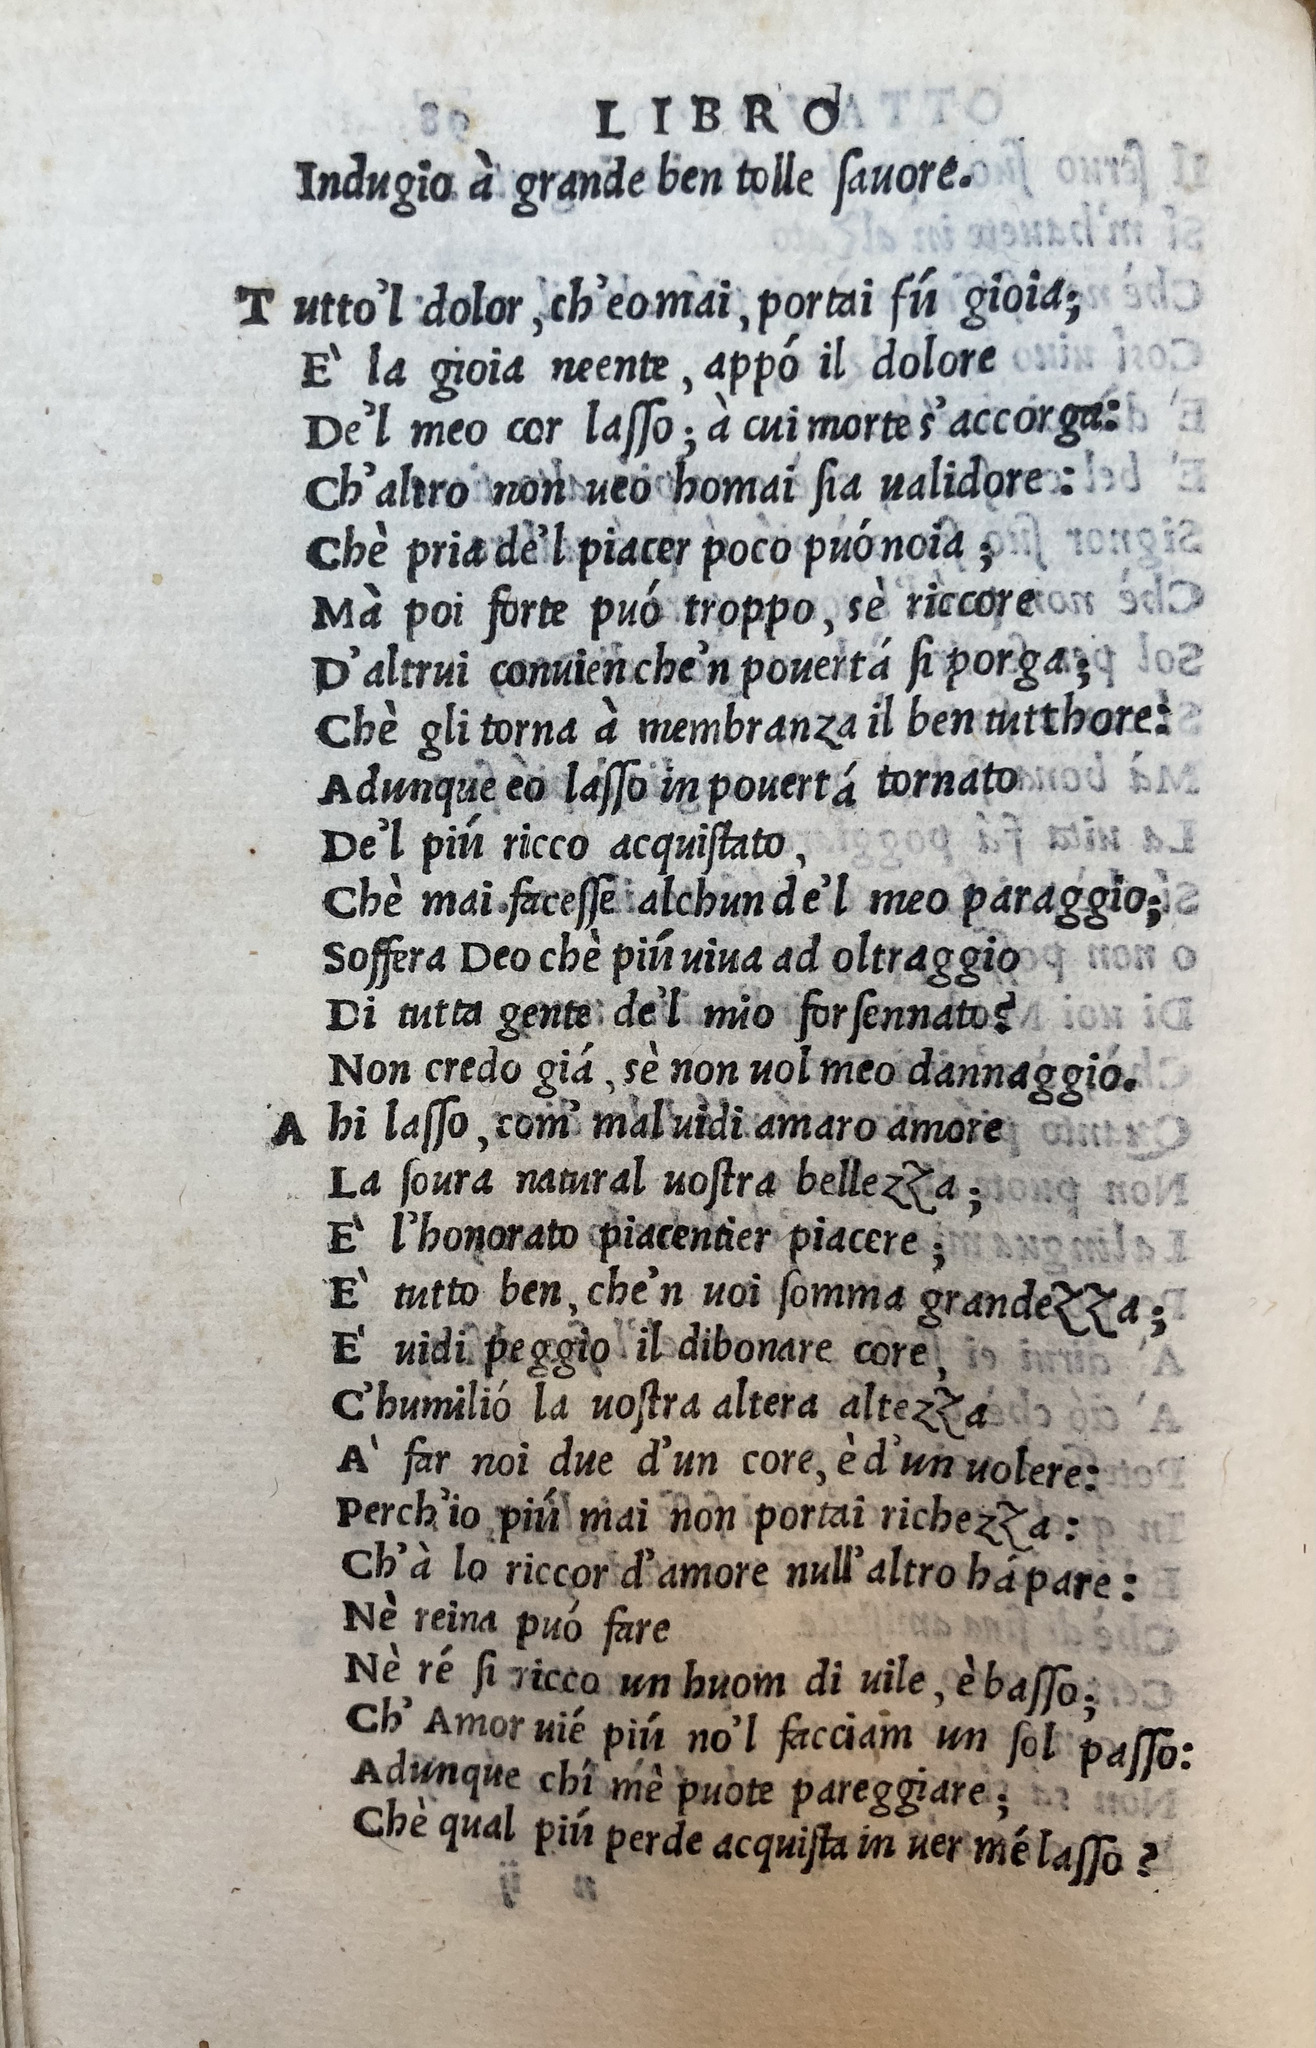 LIBRO
Indugio à grande ben tolle ſauore.
Tutto'l dolor, ch'eo mai, portai fú gioia;
E` la gioia neente, appó il dolore
De'l meo cor laſſo; à cui morte s'accorga:
Ch'altro non ueo homai ſia ualidore:
Chè pria de'l piacer poco puó noia;
Mà poi forte puó troppo, sè riccore
D'altrui conuien che'n pouertá ſi porga;
Chè gli torna à membranza il ben tutthore:
Adunque èo laſſo in pouertá tornato
De'l piú ricco acquiſtato,
Chè mai faceſſe alchun de'l meo paraggio;
Soffera Deo chè piú uiua ad oltraggio
Di tutta gente de'l mio forſennato?
Non credo giá, sè non uol meo dannaggio.
Ahi laſſo, com' mal uidi amaro amore
La ſoura natural uoſtra bellezza;
E` l'honorato piacentier piacere;
E` tutto ben, che'n uoi ſomma grandezza;
E` uidi peggio il dibonare core,
C'humilió la uoſtra altera altezza
A` far noi due d'un core, è d'un uolere:
Perch'io piú mai non portai richezza:
Ch'à lo riccor d'amore null'altro há pare:
Nè reina puó fare
Nè ré ſi ricco un huom di uile, è baſſo;
Ch' Amor uié piú no'l facciam un ſol paſſo:
Adunque chí mè puote pareggiare;
Chè qual piú perde acquiſta in uer mé laſſo?